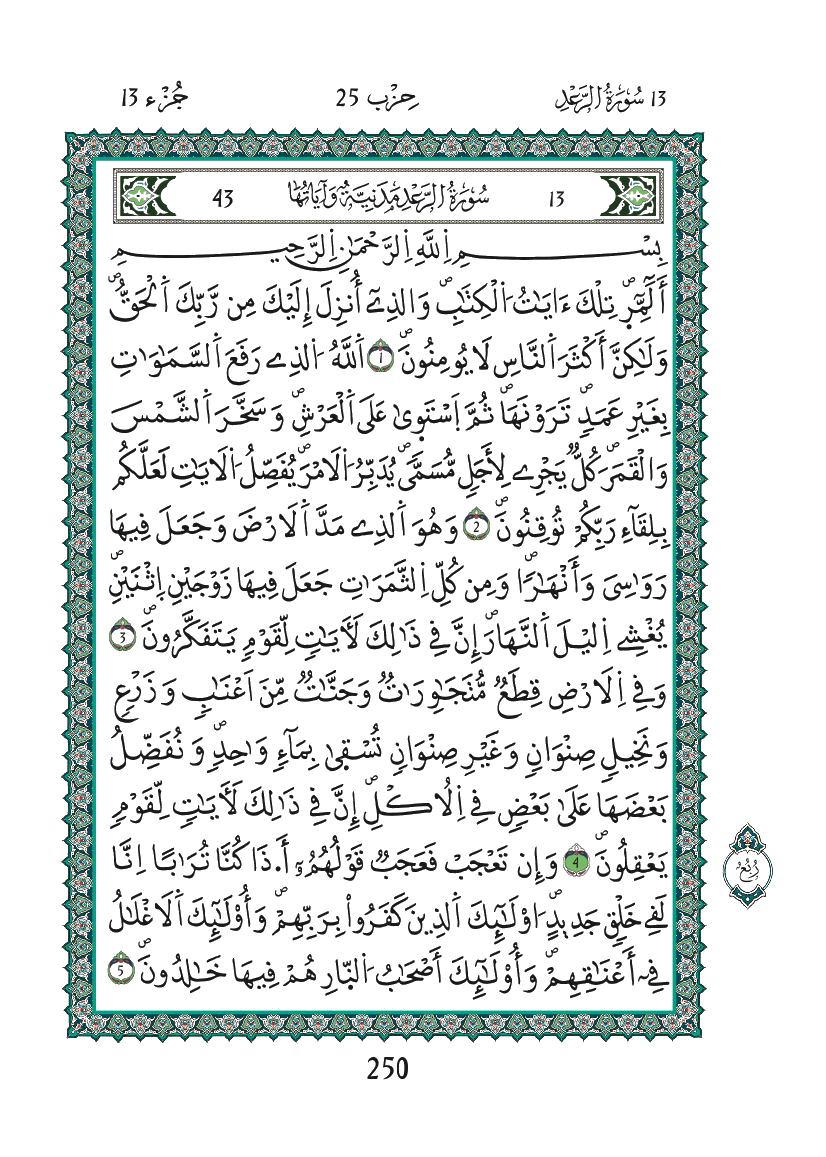 13 سُورَةُ الرَّعْدِ
حِزْب 25
جُزْء 13
13 سُورَةُ الرَّعْدِ مَدَنِيَّةٌ وَآيَاتُهَا 43
بِسْمِ اِللَّهِ اِلرَّحْمَٰنِ اِلرَّحِيمِ
أَلَٓمِّٓرۖ تِلْكَ ءَايَٰتُ اُلْكِتَٰبِۖ وَالذِےٓ أُنزِلَ إِلَيْكَ مِن رَّبِّكَ اَلْحَقُّۖ
وَلَٰكِنَّ أَكْثَرَ اَلنَّاسِ لَا يُومِنُونَۖ 1 اَللَّهُ اُلذِے رَفَعَ اَلسَّمَٰوَٰتِ
بِغَيْرِ عَمَدٖ تَرَوْنَهَاۖ ثُمَّ اَسْتَوٜىٰ عَلَى اَلْعَرْشِۖ وَسَخَّرَ اَلشَّمْسَ
وَالْقَمَرَۖ كُلّٞ يَجْرِے لِأَجَلٖ مُّسَمّيٗۖ يُدَبِّرُ اُلَامْرَۖ يُفَصِّلُ اُلَايَٰتِ لَعَلَّكُم
بِلِقَآءِ رَبِّكُمْ تُوقِنُونَۖ 2 وَهُوَ اَلذِے مَدَّ اَلَارْضَ وَجَعَلَ فِيهَا
رَوَٰسِىَ وَأَنْهَٰراٗۖ وَمِن كُلِّ اِلثَّمَرَٰتِ جَعَلَ فِيهَا زَوْجَيْنِ اِثْنَيْنِۖ
يُغْشِے اِليْلَ اَلنَّهَارَۖ إِنَّ فِے ذَٰلِكَ لَأٓيَٰتٖ لِّقَوْمٖ يَتَفَكَّرُونَۖ 3
وَفِے اِلَارْضِ قِطَعٞ مُّتَجَٰوِرَٰتٞ وَجَنَّٰتٞ مِّنَ اَعْنَٰبٖ وَزَرْعٖ
وَنَخِيلٖ صِنْوَانٖ وَغَيْرِ صِنْوَانٖ تُسْقٜىٰ بِمَآءٖ وَٰحِدٖۖ وَنُفَضِّلُ
بَعْضَهَا عَلَىٰ بَعْضٖ فِے اِلُاكْلِۖ إِنَّ فِے ذَٰلِكَ لَأٓيَٰتٖ لِّقَوْمٖ
يَعْقِلُونَۖ 4 وَإِن تَعْجَبْ فَعَجَبٞ قَوْلُهُمُۥٓ أَ.ذَا كُنَّا تُرَٰباً اِنَّا
لَفِے خَلْقٖ جَدِيدٍۖ اُوْلَٰٓئِكَ اَلذِينَ كَفَرُواْ بِرَبِّهِمْۖ وَأُوْلَٰٓئِكَ اَلَاغْلَٰلُ
فِےٓ أَعْنَاقِهِمْۖ وَأُوْلَٰٓئِكَ أَصْحَٰبُ اُلنّٜارِ هُمْ فِيهَا خَٰلِدُونَۖ 5
رُبُعُ
250